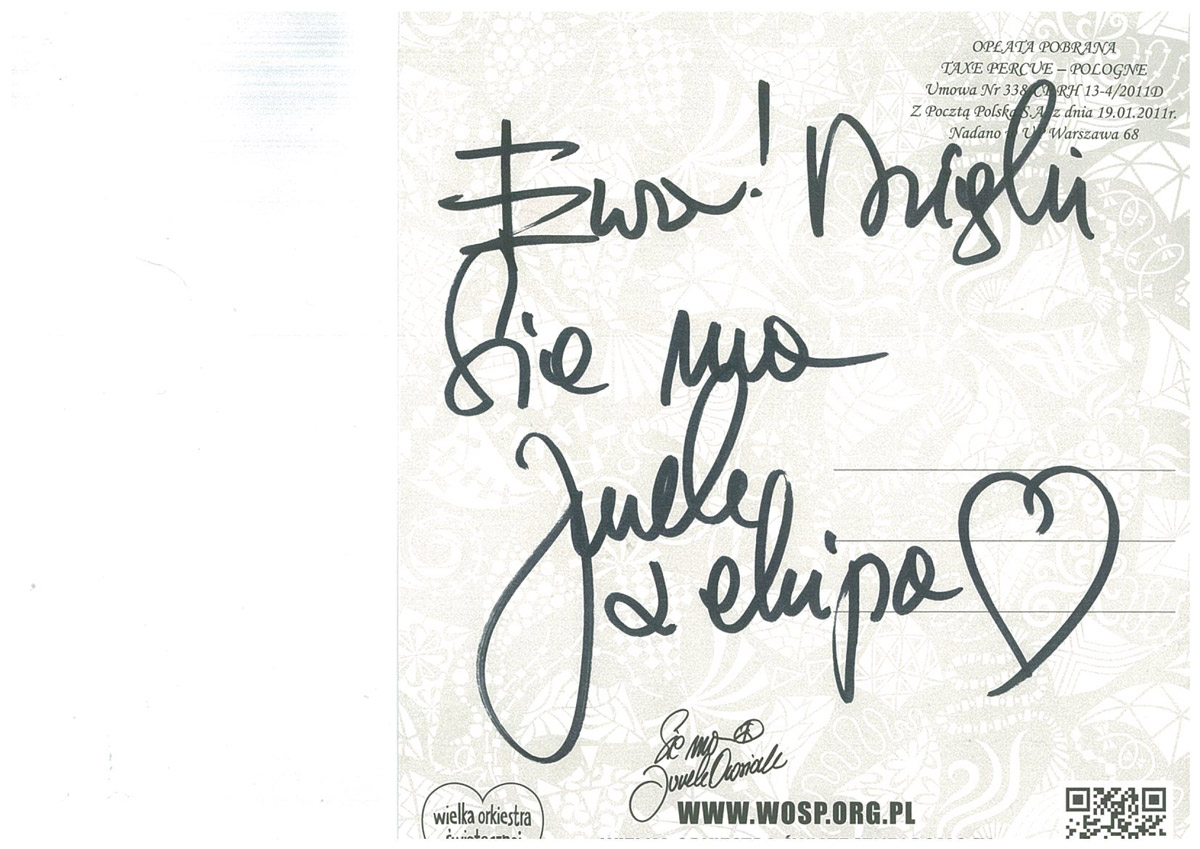 OPŁATA POBRANA
TAXE PERCUE – POLOGNE
Umowa Nr 338 RH 13-4/2011D
Z Pocztą Polską S.A. z dnia 19.01.2011r.
Nadano w UP Warszawa 68
Ewa! Dzięki
Sie ma
Jurek
z ekipą
Sie ma
Jurek Owsiak
wielka orkiestra
świątecznej
WWW.WOSP.ORG.PL